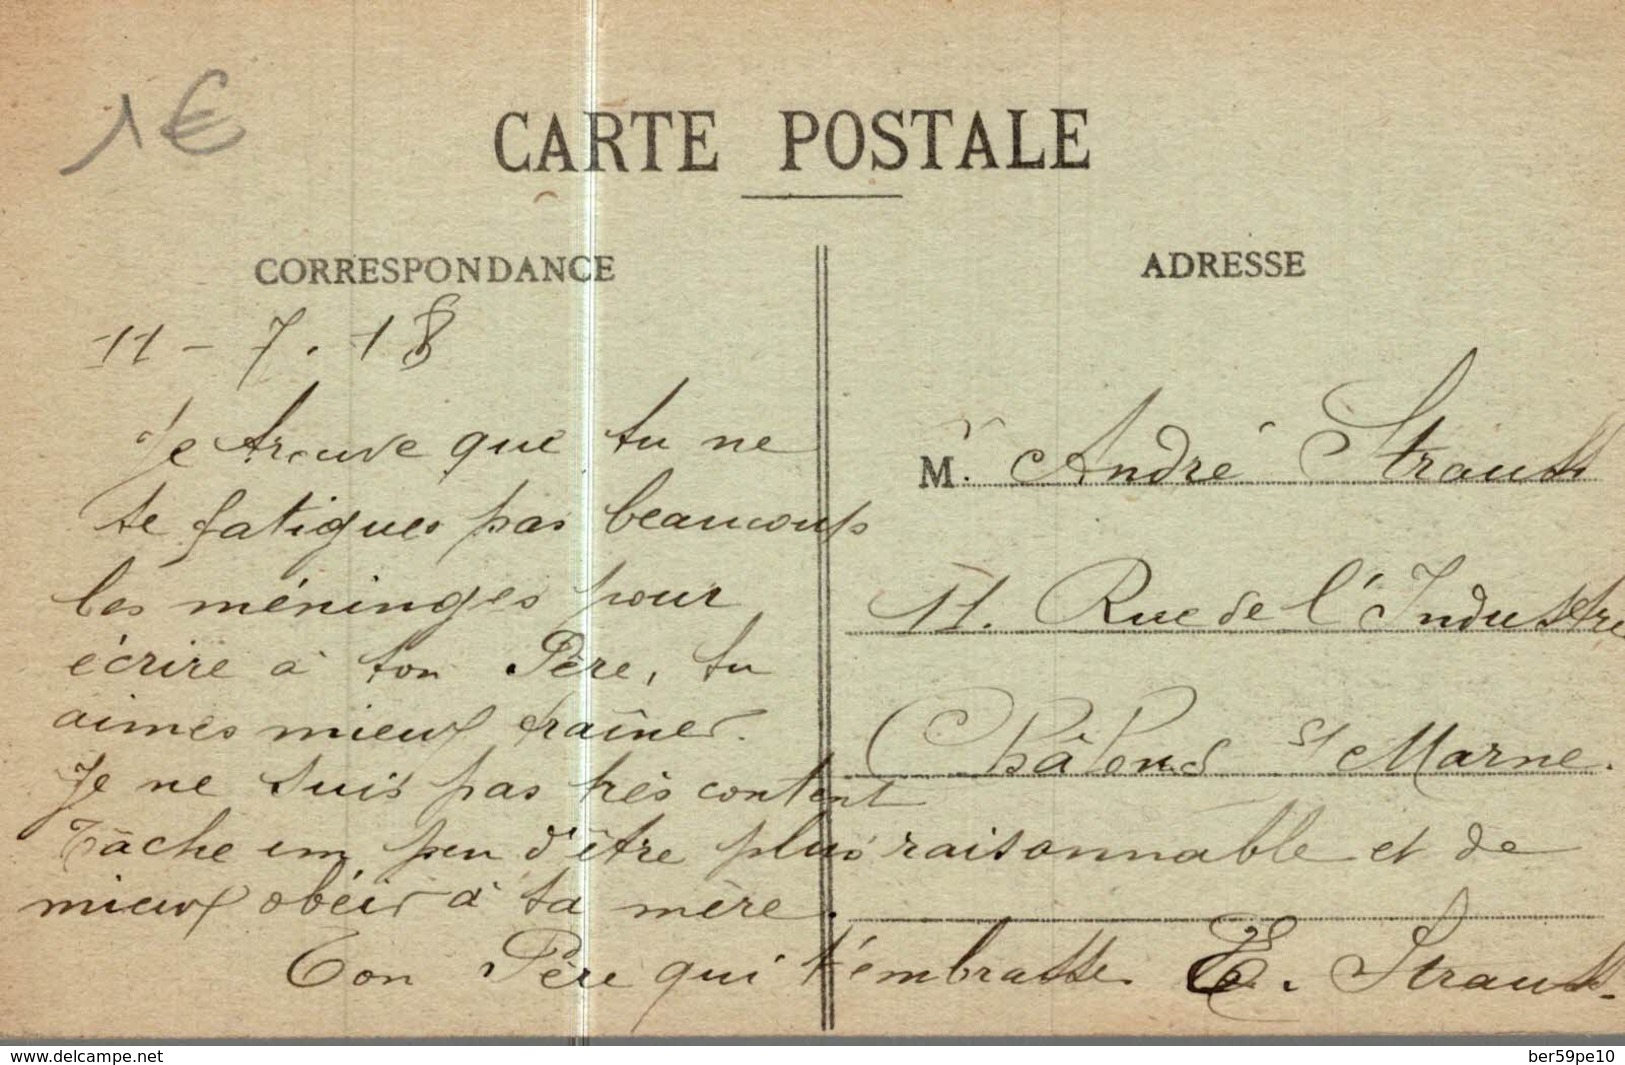 1 €
CARTE POSTALE
CORRESPONDANCE
11 - 7 . 18
Je trouve que tu ne
te fatigues pas beaucoup
les méninges pour
écrire à ton Père, tu
aimes mieux traîner.
Je ne suis pas très content
Tâche un peu d'être plus raisonnable et de
mieux obéir à ta mère.
Ton Père qui t'embrasse E. Strauss
ADRESSE
M. André Strauss
11. Rue de l'Industrie
Châlons s/ Marne.
www.delcampe.net
ber59pe10